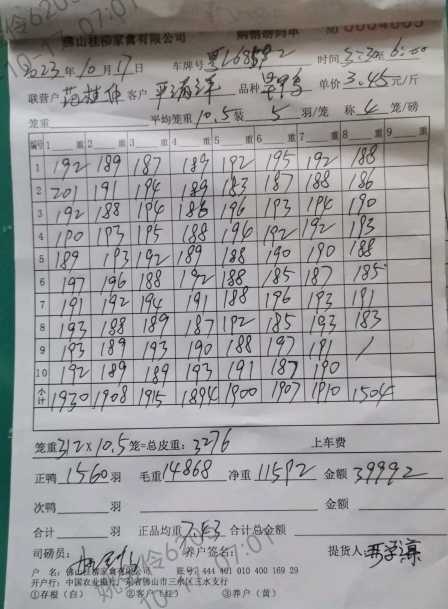 佛山桂柳家禽有限公司 购销合同单 № 0004005
2023年10月17日 车牌号 时间 3:30至6:00
联营户 客户 品种 单价3.45元/斤
笼重 平均笼重10.5装5羽/笼 称4笼/磅
编号 1 重 2 重 3 重 4 重 5 重 6 重 7 重 8 重 9 重
1 192 189 187 189 192 195 192 188
2 201 191 194 189 183 187 188 186
3 192 188 194 186 196 193 194 190
4 190 193 195 188 196 192 192 193
5 189 193 192 189 188 190 190 188
6 197 196 188 192 188 185 187 185
7 191 192 194 191 188 196 193 191
8 193 188 189 187 192 185 193 183
9 193 189 193 190 188 197 191 /
10 192 189 189 193 191 187 190
小计 1930 1908 1915 1894 1900 1907 1910 1504
笼重312×10.5笼=总皮重:3276 上车费
正鸭1560羽 毛重14868 净重11592 金额39992
次鸭 羽 金额
合计 羽 正品均重7.43 合计总金额
司磅员: 养户签名: 提货人:
户 名:佛山桂柳家禽有限公司 账号:444 401 010 400 169 29
开户行:中国农业银行广东省佛山市三水区三水支行
①存根(白) ②客户(红) ③养户(黄)